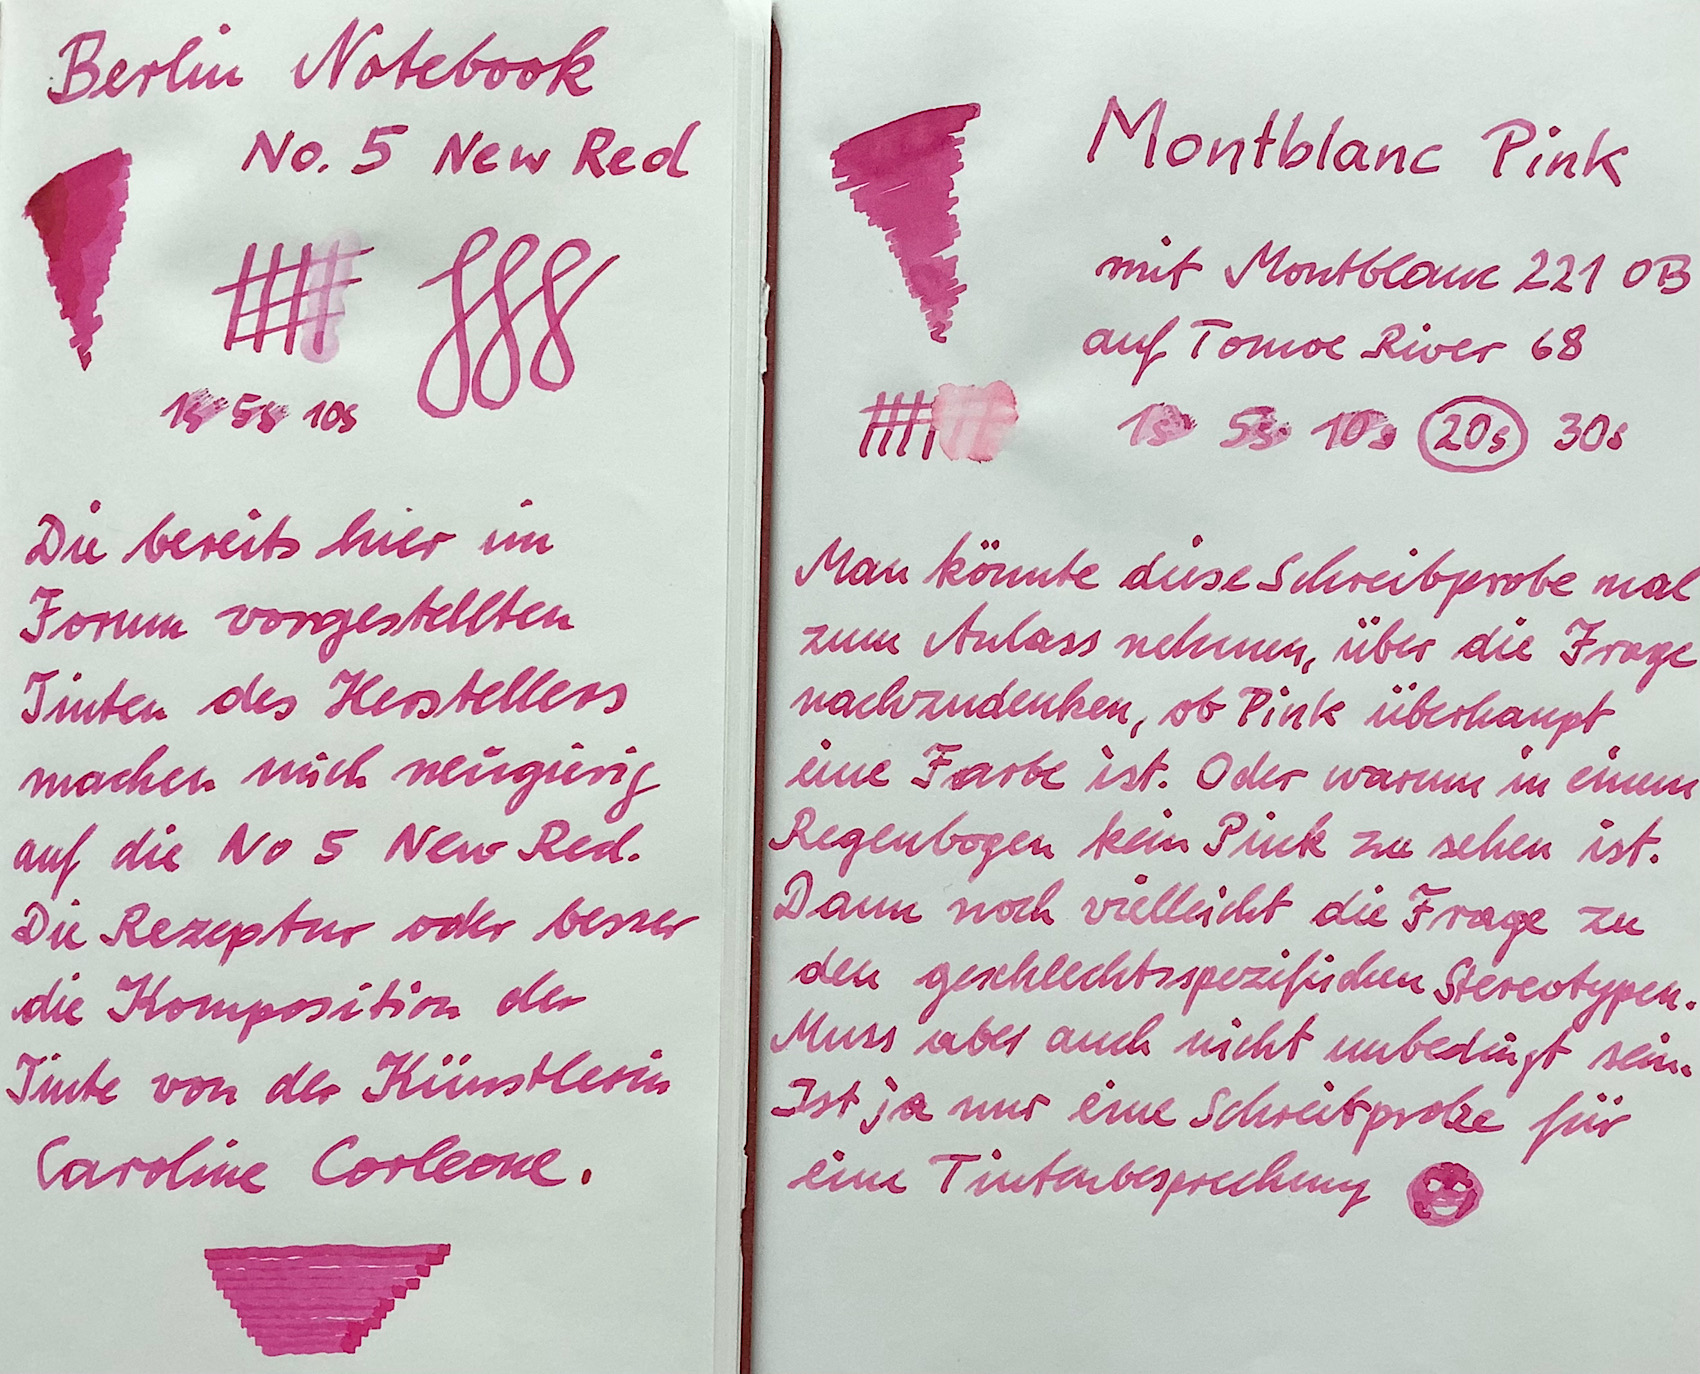 Berlin Notebook
No. 5 New Red
1s 5s 10s
Die bereits hier im
Forum vorgestellten
Tinten des Herstellers
machen mich neugierig
auf die No 5 New Red.
Die Rezeptur oder besser
die Komposition der
Tinte von der Künstlerin
Caroline Corleone.
Montblanc Pink
mit Montblanc 221 OB
auf Tomoe River 68
1s 5s 10s 20s 30s
Man könnte diese Schreibprobe mal
zum Anlass nehmen, über die Frage
nachzudenken, ob Pink überhaupt
eine Farbe ist. Oder warum in einem
Regenbogen kein Pink zu sehen ist.
Dann noch vielleicht die Frage zu
den geschlechtsspezifischen Stereotypen.
Muss aber auch nicht unbedingt sein.
Ist ja nur eine Schreibprobe für
eine Tintenbesprechung